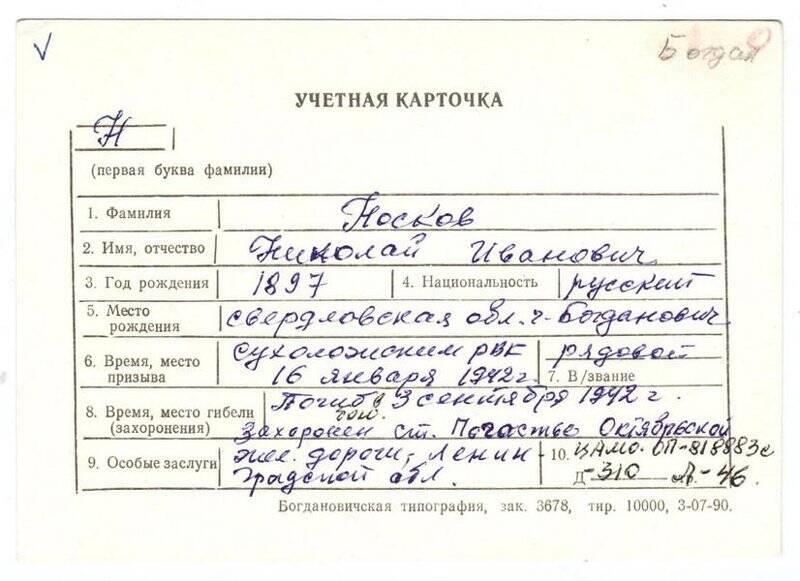 Богдан
УЧЕТНАЯ КАРТОЧКА
Н
(первая буква фамилии)
1. Фамилия Носков
2. Имя, отчество Николай Иванович
3. Год рождения 1897 4. Национальность русский
5. Место рождения свердловская обл. г. Богданович
6. Время, место призыва Сухоложским РВК 16 января 1942г.
7. В/звание рядовой
8. Время, место гибели (захоронения) Погиб 3 сентября 1942 г.
Захоронен ст. Погостье Октябрьской
жел. дороги, Ленин-
градской обл.
9. Особые заслуги
10. ЦАМО. ОП-818883с
Д-310 Л-46.
Богдановичская типография, зак. 3678, тир. 10000, 3-07-90.